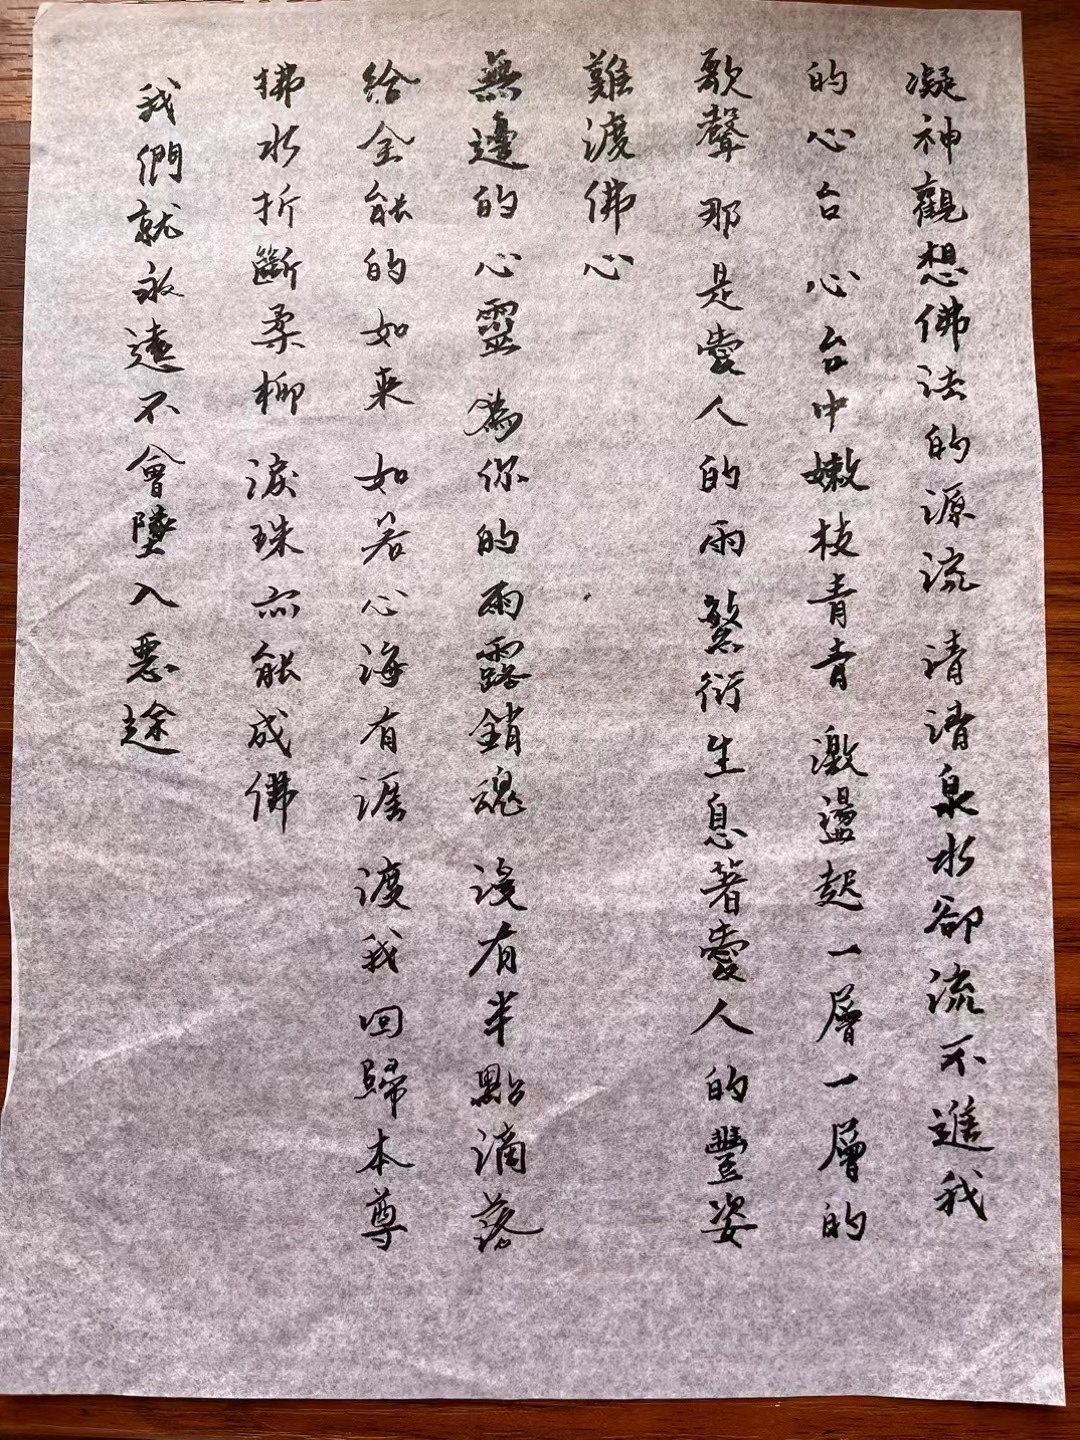 凝神觀想佛法的源流 清清泉水卻流不進我
的心台 心台中嫩枝青青 激盪起一層一層的
歌聲那是愛人的雨 繁衍生息著愛人的豐姿
難渡佛心
無邊的心靈 為你的雨露銷魂 沒有半點滴落
給全能的如來 如若心海有涯 渡我回歸本尊
拂水折斷柔柳 淚珠亦能成佛
我們就永遠不會墜入惡途